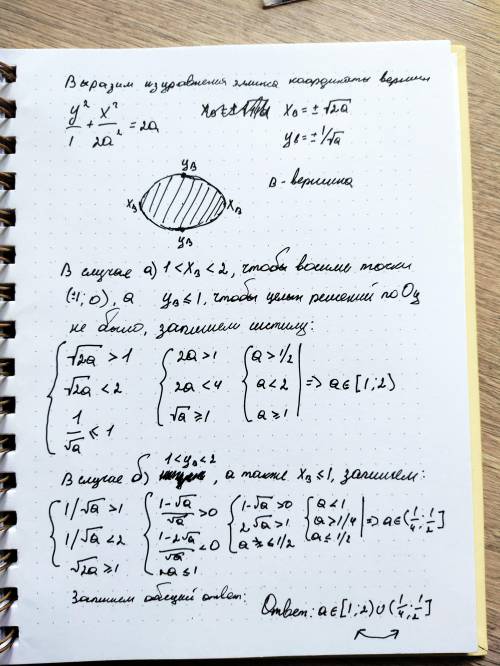 Выразим из уравнения элипса координаты вершин
y²/1 + x²/2a² = 2a xв = ±√2a
yв = ±1/√a
yв
xв xв
yв
в - вершина
В случае а) 1 < xв < 2, чтобы вошли точки
(±1; 0), а yв ≤ 1, чтобы целых решений по Оy
не было, запишем систему:
{ √2a > 1 { 2a > 1 { a > 1/2
√2a < 2 2a < 4 a < 2 | => a ∈ [1; 2)
1/√a ≤ 1 √a ≥ 1 a ≥ 1
В случае б) 1 < yв < 2, а также xв ≤ 1, запишем:
{ 1/√a > 1 { (1-√a)/√a > 0 { 1-√a > 0 { a < 1
1/√a < 2 (1-2√a)/√a < 0 2√a > 1 a > 1/4 | => a ∈ (1/4; 1/2]
√2a ≥ 1 2a ≤ 1 a ≤ 1/2 a ≤ 1/2
Запишем общий ответ: Ответ: a ∈ [1; 2) ∪ (1/4; 1/2]